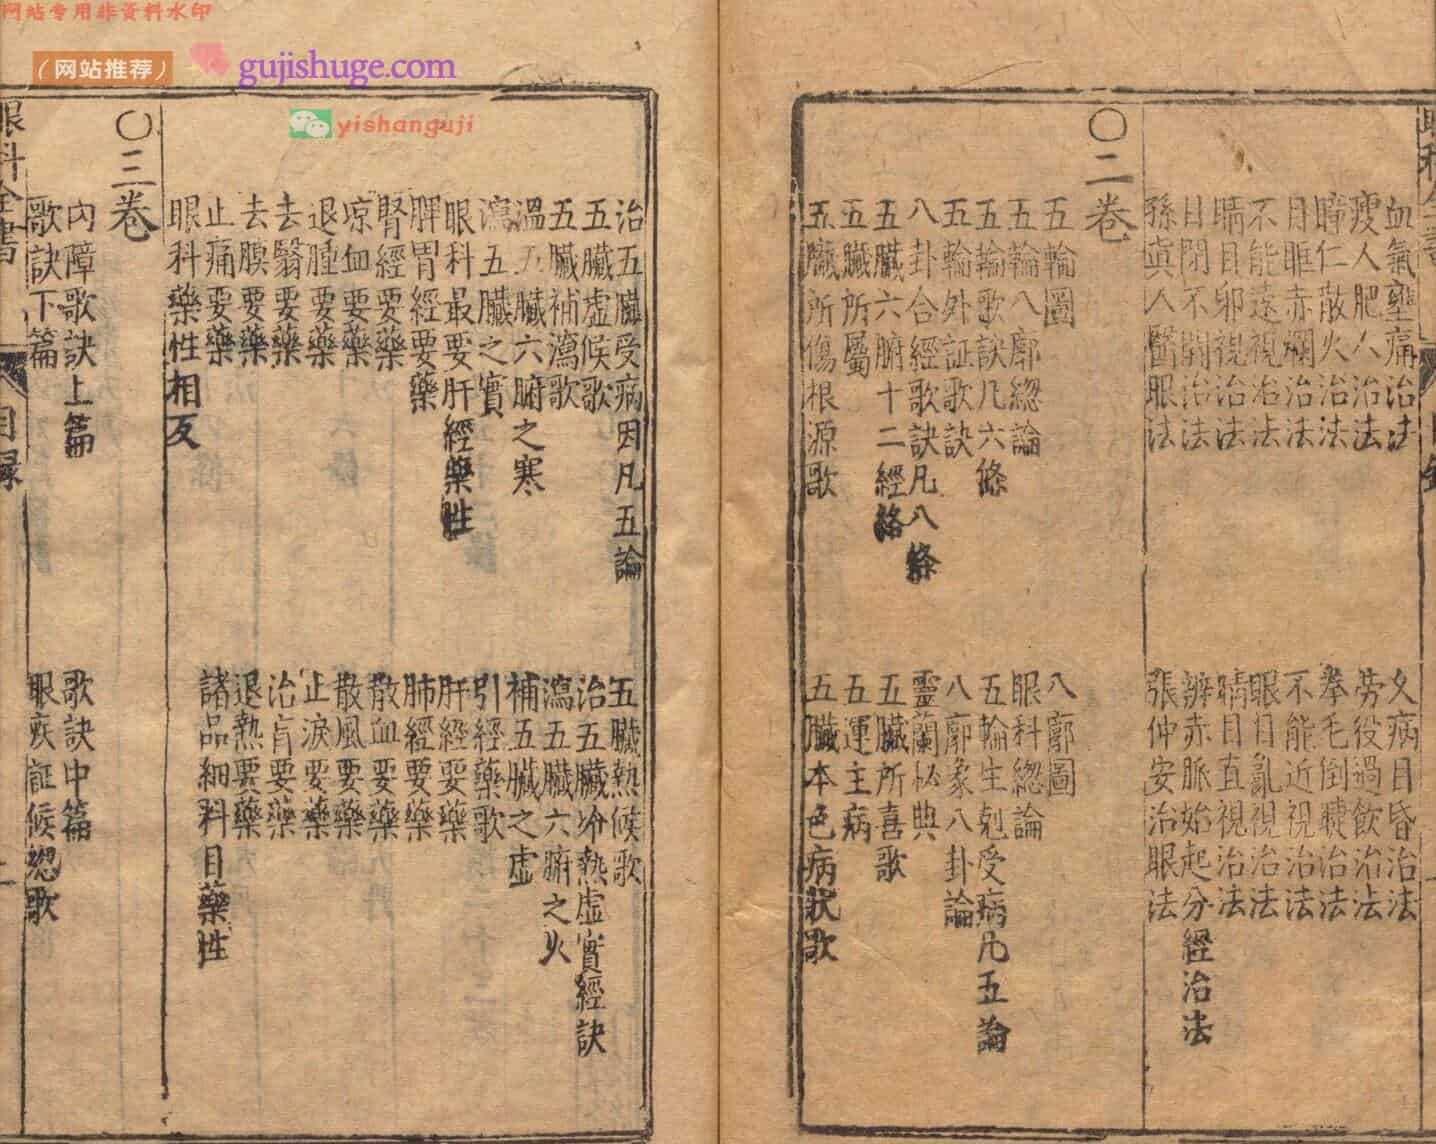 网站专用非资料水印
（网站推荐）
gujishuge.com
yishanguji
血氣壅痛治法
久病目昏治法
瘦人肥人治法
勞役過飲治法
瞳仁散火治法
拳毛倒睫治法
目眶赤爛治法
不能近視治法
不能遠視治法
眼目亂視治法
睛目卯視治法
睛目直視治法
目閉不開治法
辨赤脈始起分經治法
孫眞人醫眼法
張仲安治眼法
〇二卷
五輪圖
八廓圖
五輪八廓總論
眼科總論
五輪歌訣凡六條
五輪生剋受病凡五論
五輪外証歌訣
八廓象八卦論
八卦合經歌訣凡八條
靈蘭秘典
五臟六腑十二經絡
五臟所喜歌
五臟所屬
五運主病
五臟所傷根源歌
五臟本色病狀歌
治五臟受病因凡五論
五臟熱候歌
五臟虛候歌
治五臟冷熱虛實經訣
五臟補瀉歌
瀉五臟六腑之火
溫五臟六腑之寒
補五臟之虛
瀉五臟之實
引經藥歌
眼科最要肝經藥性
肝經要藥
脾胃經要藥
肺經要藥
腎經要藥
散血要藥
凉血要藥
散風要藥
退腫要藥
止淚要藥
去翳要藥
治肓要藥
去膜要藥
退熱要藥
止痛要藥
諸品細料目藥性
眼科藥性相反
〇三卷
內障歌訣上篇
歌訣中篇
歌訣下篇
眼疾証候總歌
眼科全書
目録